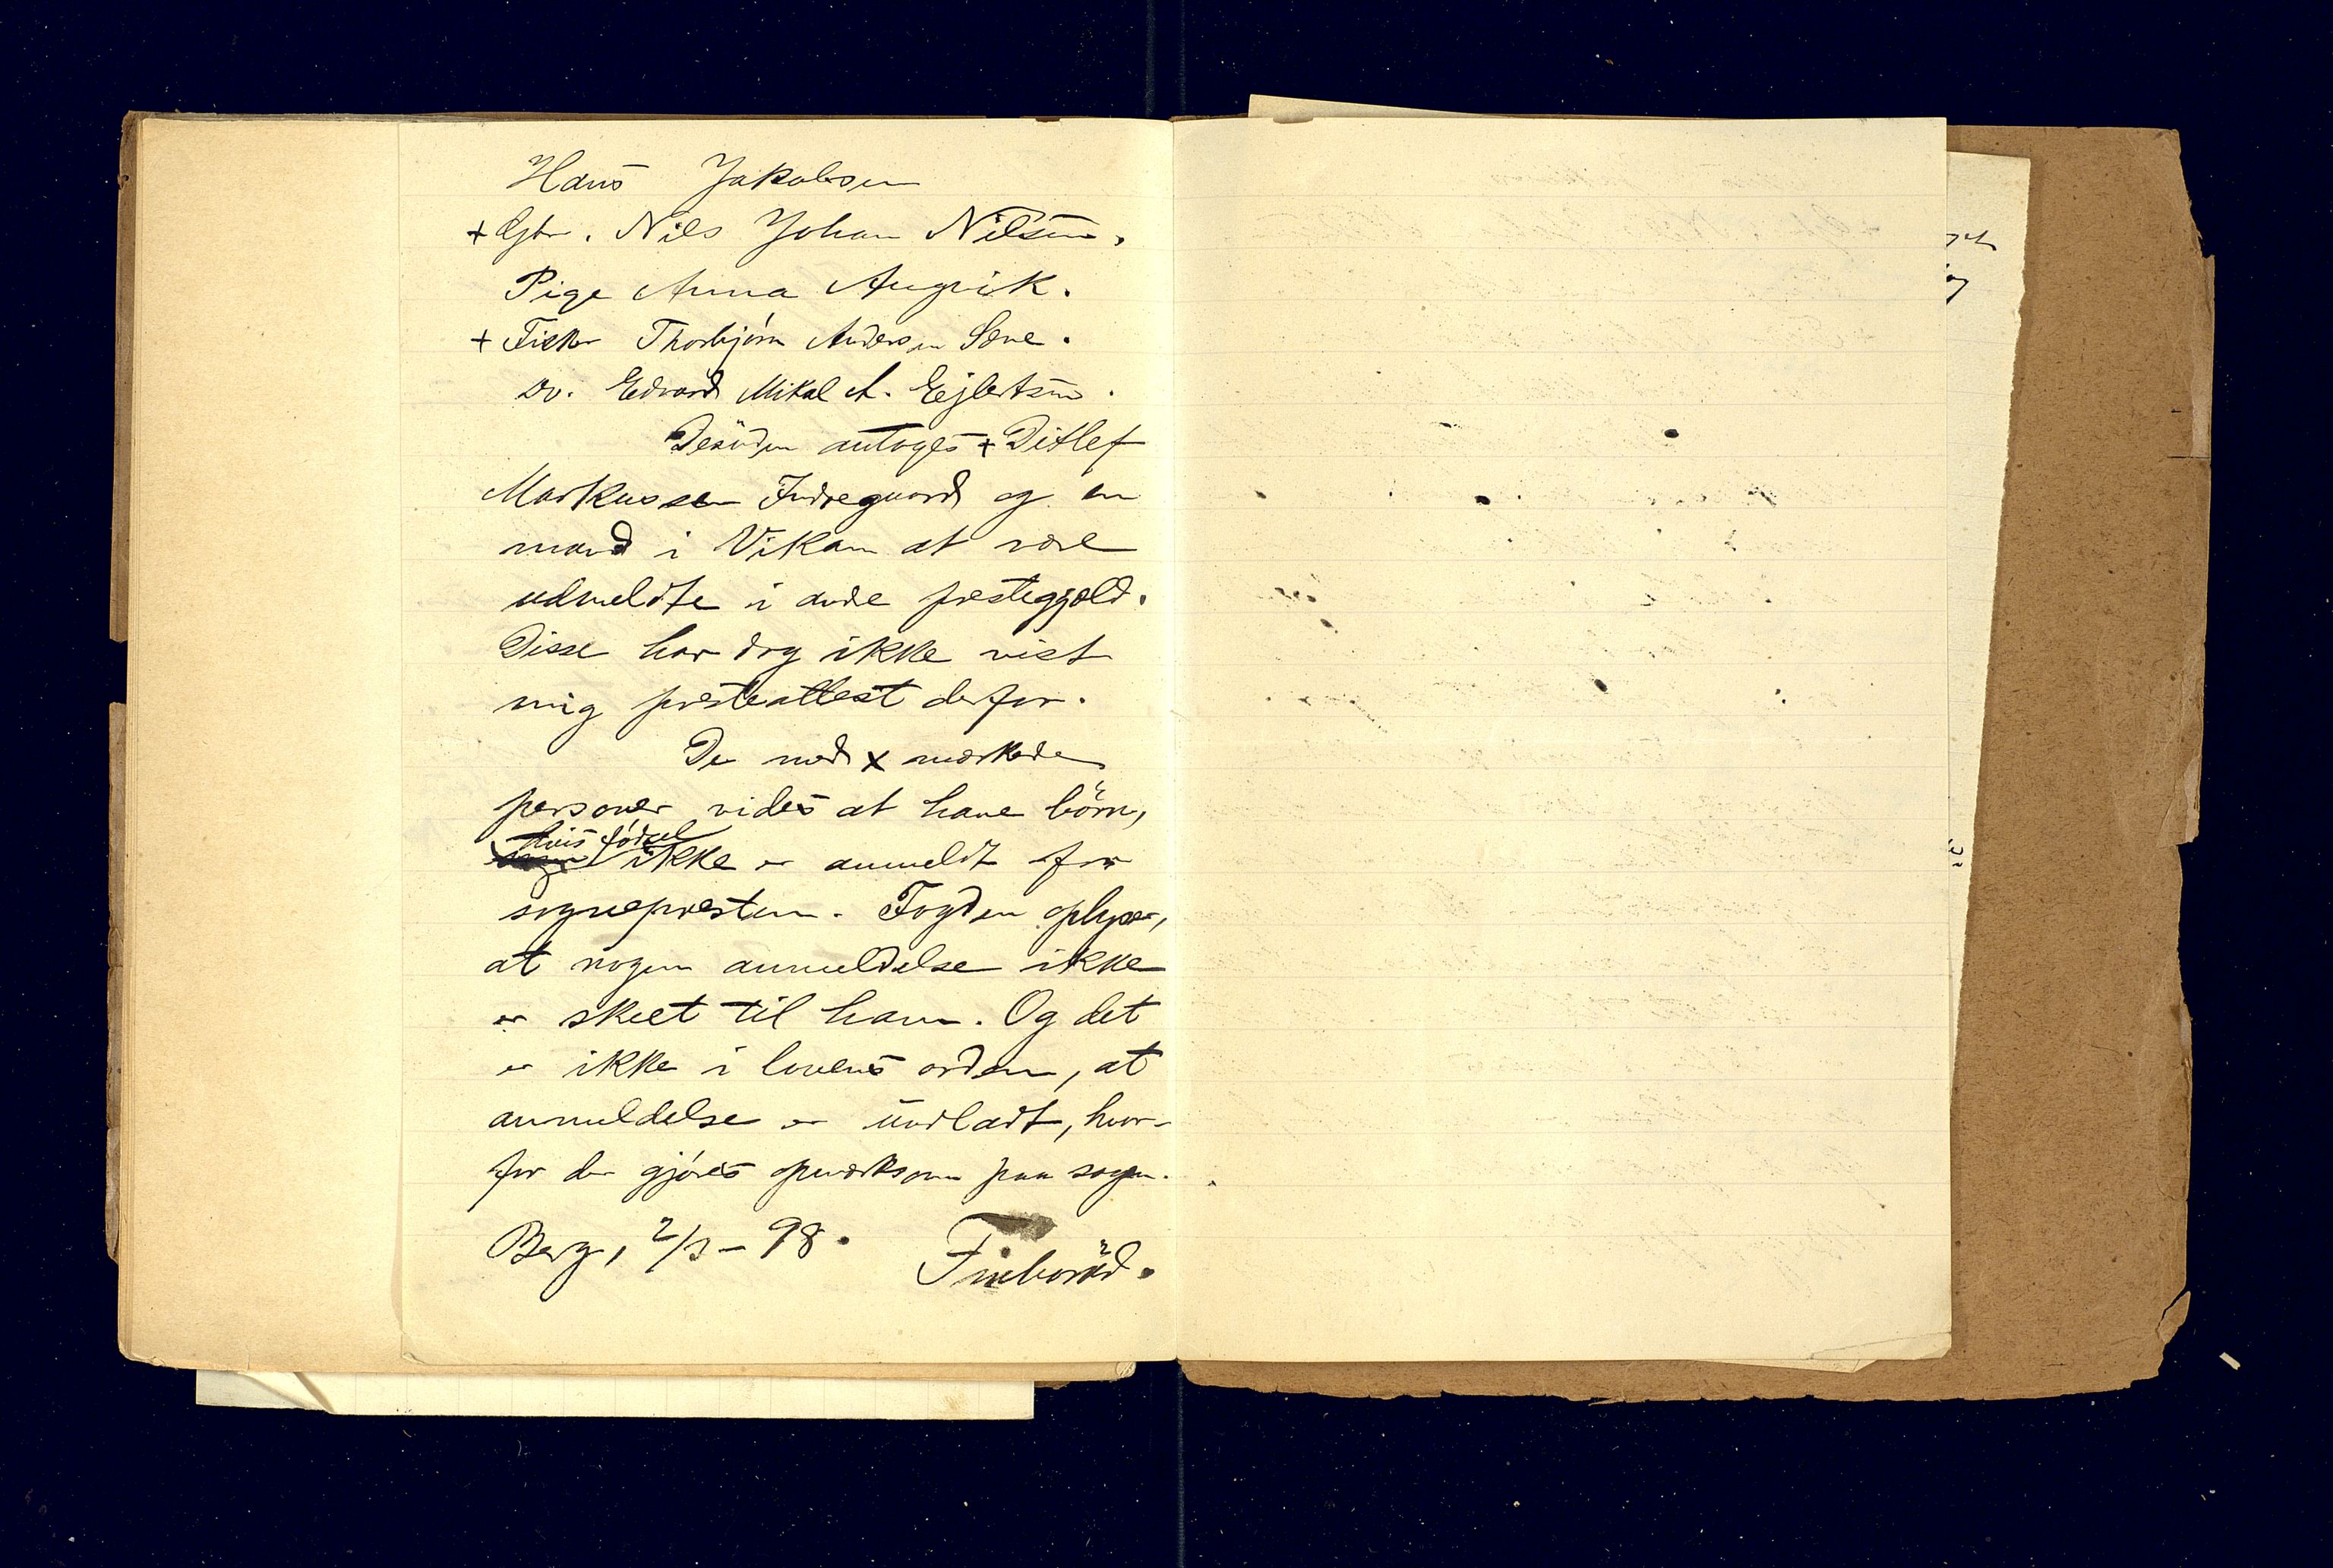 Hans Jakobsen
+ Gbr. Nils Johan Nilsen,
Pige Anna Angvik.
+ Fisker Thorbjörn Andersen Sæne.
Do. Edvard Mikal A. Eilertsen.
Desuden antoges + Ditlef
Markussen Indregaard og en
mand i Viken at være
udmeldte i andre prestegjæld.
Disse har dog ikke vist
mig presteattest derfor.
De med x merkede
personer vides at have börn,
hvis födsel
ikke er anmeldt for
sognepresten. Fogden oplyser,
at nogen anmeldelse ikke
er skeet til ham. Og det
er ikke i lovens orden, at
anmeldelse er undladt, hvor-
for der gjöres opmerksom paa sagen.
Berg, 2/3 - 98.